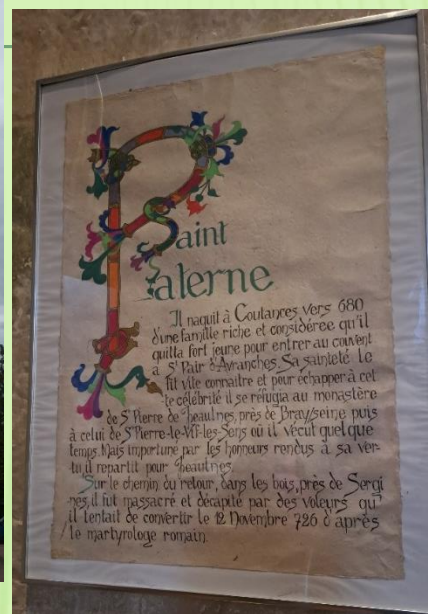 Saint
Paterne
Il naquit à Coutances vers 680
d'une famille riche et considérée qu'il
quitta fort jeune pour entrer au couvent
à St Pair d'Avranches. Sa sainteté le
fit vite connaitre et pour échapper à cet
te célébrité il se réfugia au monastère
de St Pierre de Jheaulnes, près de Bray/seine puis
à celui de St Pierre-le-Vif-les-Sens où il vécut quelque
temps. Mais importuné par les honneurs rendus à sa ver-
tu il repartit pour Jheaulnes.
Sur le chemin du retour, dans les bois, près de Sergi
nes, il fut massacré et décapité par des voleurs qu'
il tentait de convertir le 12 Novembre 726 d'après
le martyrologe romain.